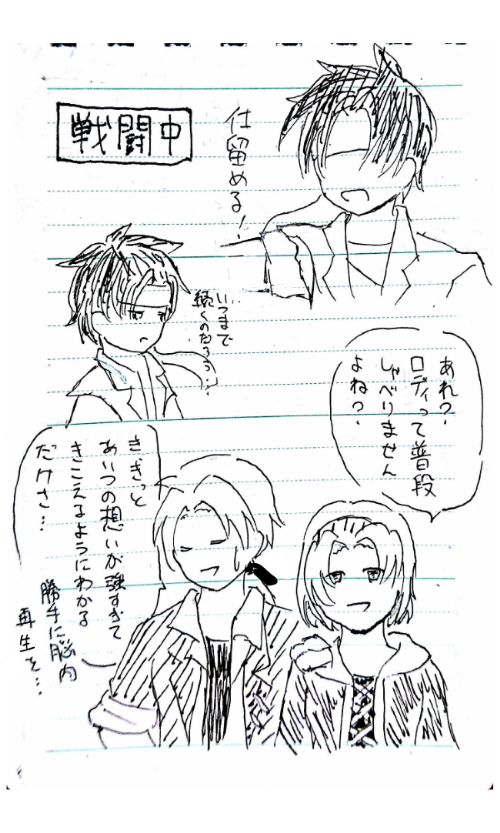 戦闘中
仕留める!
いつまで
続くのだろう…
あれ?
ロディって普段
しゃべりません
よね?
き、きっと
あいつの想いが強すぎて
きこえるようにわかる
だけさ…
勝手に脳内
再生を…